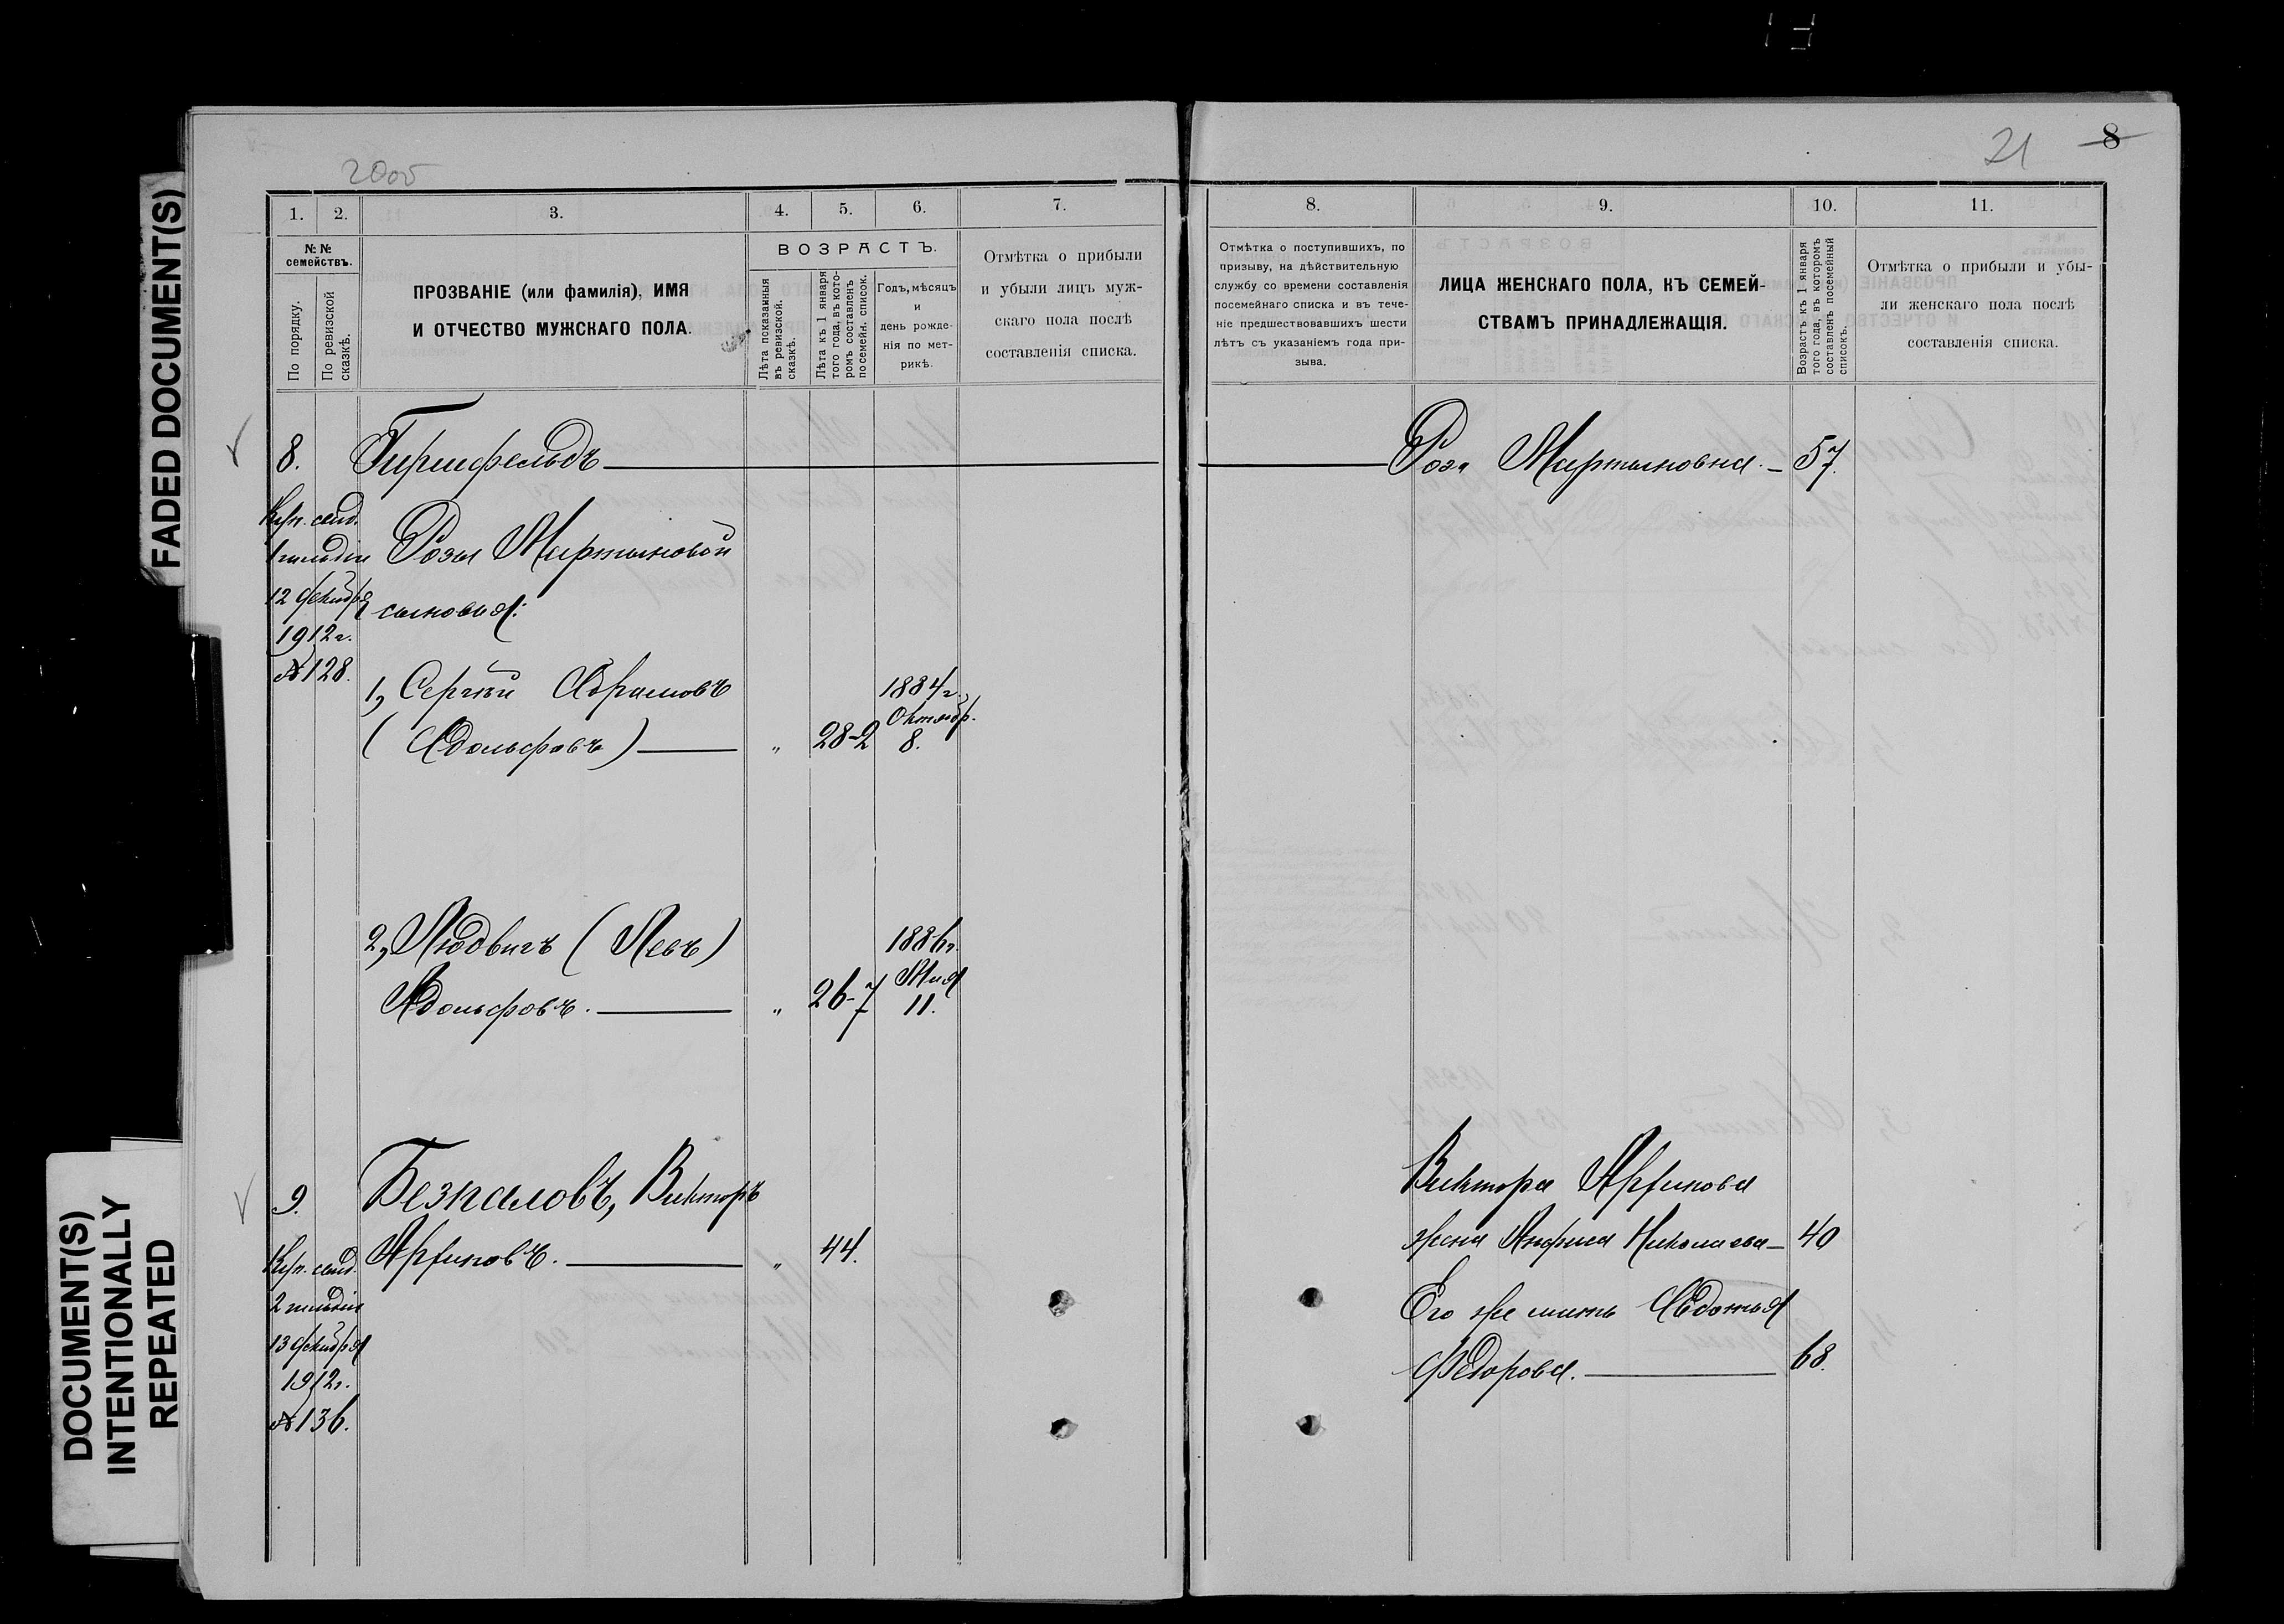 FADED DOCUMENT(S)
DOCUMENT(S)
INTENTIONALLY
REPEATED
1. 2. 3. 4. 5. 6. 7.
№№ семействъ.
По порядку.
По ревизской сказкѣ.
ПРОЗВАНІЕ (или фамилія), ИМЯ
И ОТЧЕСТВО МУЖСКАГО ПОЛА.
ВОЗРАСТЪ.
Лѣта показанныя въ ревизской сказкѣ.
Лѣта къ 1 января того года, въ которомъ составленъ посемейн. список.
Годъ, мѣсяцъ
и
день рожде-
нія по мет-
рикѣ.
Отмѣтка о прибыли
и убыли лицъ муж-
скаго пола послѣ
составленія списка.
8.
Гиршфельдъ
Куп. свид.
1 гильдіи
12 декабря
1912 г.
№128.
Розы Мартыновой
сыновья:
1, Сергѣй Абрамовъ
(Адольфовъ) " 28-2 1884 г. Октябр. 8.
2, Людвигъ (Левъ)
Адольфовъ. " 26-7 1886 г. Мая 11.
9.
Безпаловъ, Викторъ
" 44.
Куп. свид.
2 гильдіи
13 декабря
1912 г.
№136.
21 8
8. 9. 10. 11.
Отмѣтка о поступившихъ, по
призыву, на дѣйствительную
службу со времени составленія
посемейнаго списка и въ тече-
ніе предшествовавшихъ шести
лѣтъ съ указаніемъ года при-
зыва.
ЛИЦА ЖЕНСКАГО ПОЛА, КЪ СЕМЕЙ-
СТВАМЪ ПРИНАДЛЕЖАЩІЯ.
Возрастъ къ 1 января
того года, въ которомъ
составленъ посемейный
списокъ.
Отмѣтка о прибыли и убы-
ли женскаго пола послѣ
составленія списка.
Роза Мартыновна. 57.
Виктора
жена Анфиса Николаева 40
Его же мать Авдотья
Федорова. 68.